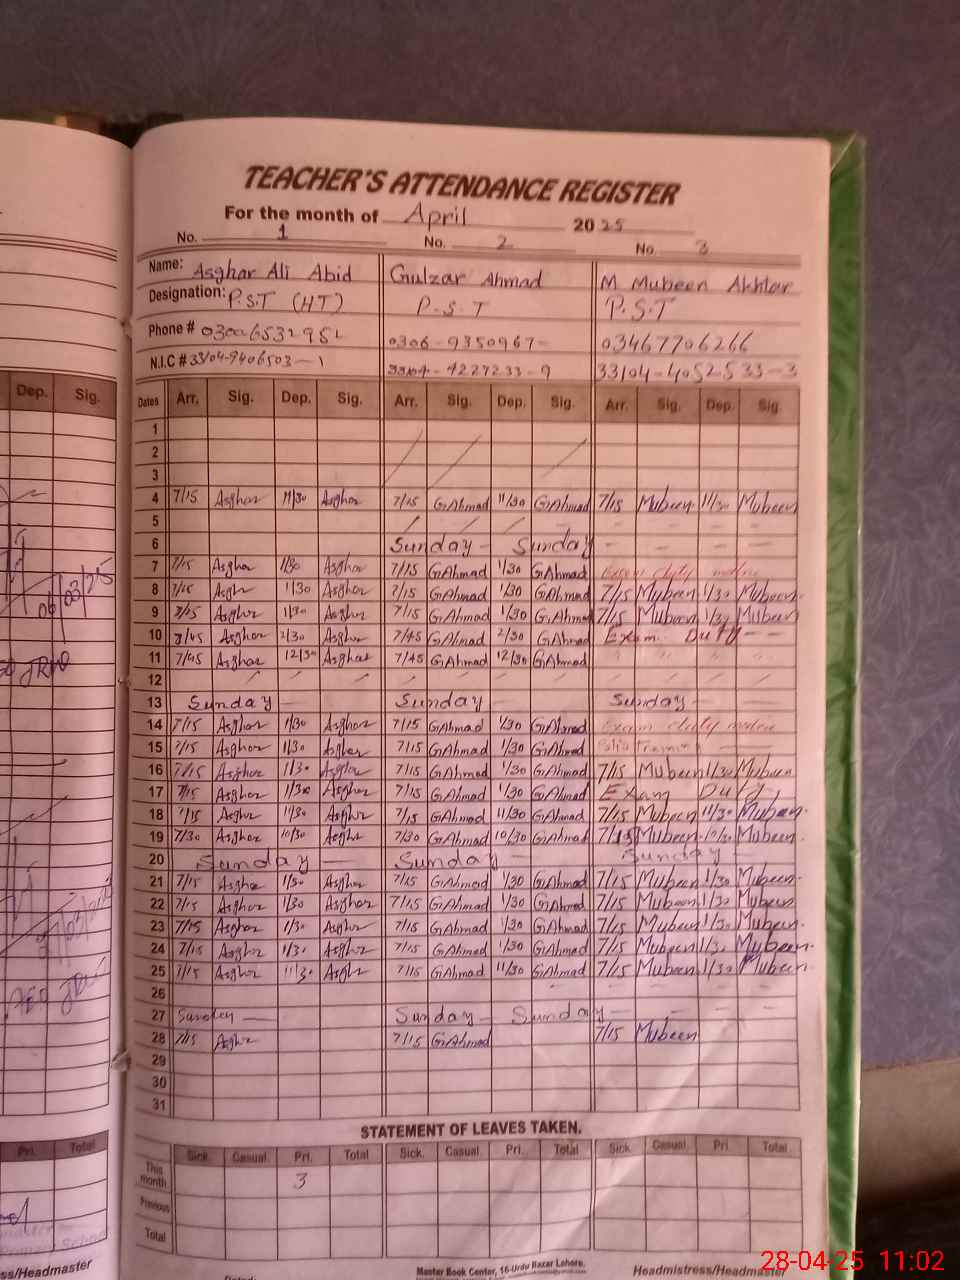 TEACHER'S ATTENDANCE REGISTER
For the month of April 2025
No. 1 No. 2 No. 3
Name: Asghar Ali Abid Gulzar Ahmad M Mubeen Akhtar
Designation: P.S.T (HT) P.S.T P.S.T
Phone # 0306-9350967- 03467706266
N.I.C # 33104-9406503-1 33104-4227233-9 33104-4052533-3
Dep. Sig. Dates Arr. Sig. Dep. Sig. Arr. Sig. Dep. Sig. Arr. Sig. Dep. Sig
1
2
3
4 7/15 Asghar 11/30 Asghar 7/15 G.Ahmad 11/30 G.Ahmad 7/15 Mubeen 11/30 Mubeen
5
6 Sunday - Sunday
7 7/15 Asghar 1/30 Asghar 7/15 G.Ahmad 1/30 G.Ahmad Exam duty
8 7/15 Asghar 1/30 Asghar 7/15 G.Ahmad 1/30 G.Ahmad 7/15 Mubeen 1/30 Mubeen
9 7/15 Asghar 1/30 Asghar 7/15 G.Ahmad 1/30 G.Ahmad 7/15 Mubeen 1/30 Mubeen
10 7/45 Asghar 2/30 Asghar 7/45 G.Ahmad 2/30 G.Ahmad Exam Duty
11 7/45 Asghar 12/30 Asghar 7/45 G.Ahmad 12/30 G.Ahmad
12
13 Sunday - Sunday - Sunday -
14 7/15 Asghar 1/30 Asghar 7/15 G.Ahmad 1/30 G.Ahmad Exam duty
15 7/15 Asghar 1/30 Asghar 7/15 G.Ahmad 1/30 G.Ahmad Training
16 7/15 Asghar 1/30 Asghar 7/15 G.Ahmad 1/30 G.Ahmad 7/15 Mubeen 1/30 Mubeen
17 7/15 Asghar 1/30 Asghar 7/15 G.Ahmad 1/30 G.Ahmad Exam Duty
18 7/15 Asghar 11/30 Asghar 7/15 G.Ahmad 11/30 G.Ahmad 7/15 Mubeen 11/30 Mubeen
19 7/30 Asghar 10/30 Asghar 7/30 G.Ahmad 10/30 G.Ahmad 7/15 Mubeen 10/30 Mubeen
20 Sunday - Sunday - Sunday -
21 7/15 Asghar 1/30 Asghar 7/15 G.Ahmad 1/30 G.Ahmad 7/15 Mubeen 1/30 Mubeen
22 7/15 Asghar 1/30 Asghar 7/15 G.Ahmad 1/30 G.Ahmad 7/15 Mubeen 1/30 Mubeen
23 7/15 Asghar 1/30 Asghar 7/15 G.Ahmad 1/30 G.Ahmad 7/15 Mubeen 1/30 Mubeen
24 7/15 Asghar 1/30 Asghar 7/15 G.Ahmad 1/30 G.Ahmad 7/15 Mubeen 1/30 Mubeen
25 7/15 Asghar 11/30 Asghar 7/15 G.Ahmad 11/30 G.Ahmad 7/15 Mubeen 1/30 Mubeen
26
27 Sunday - Sunday - Sunday -
28 7/15 Asghar 7/15 G.Ahmad 7/15 Mubeen
29
30
31
STATEMENT OF LEAVES TAKEN.
Pri. Total Sick. Casual. Pri. Total Sick. Casual Pri. Total Sick. Casual. Pri. Total
This month 3
Previous
Total
Master Book Center, 16-Urdu Bazar Lahore.
ss/Headmaster Headmistress/Headmaster
28-04-25 11:02